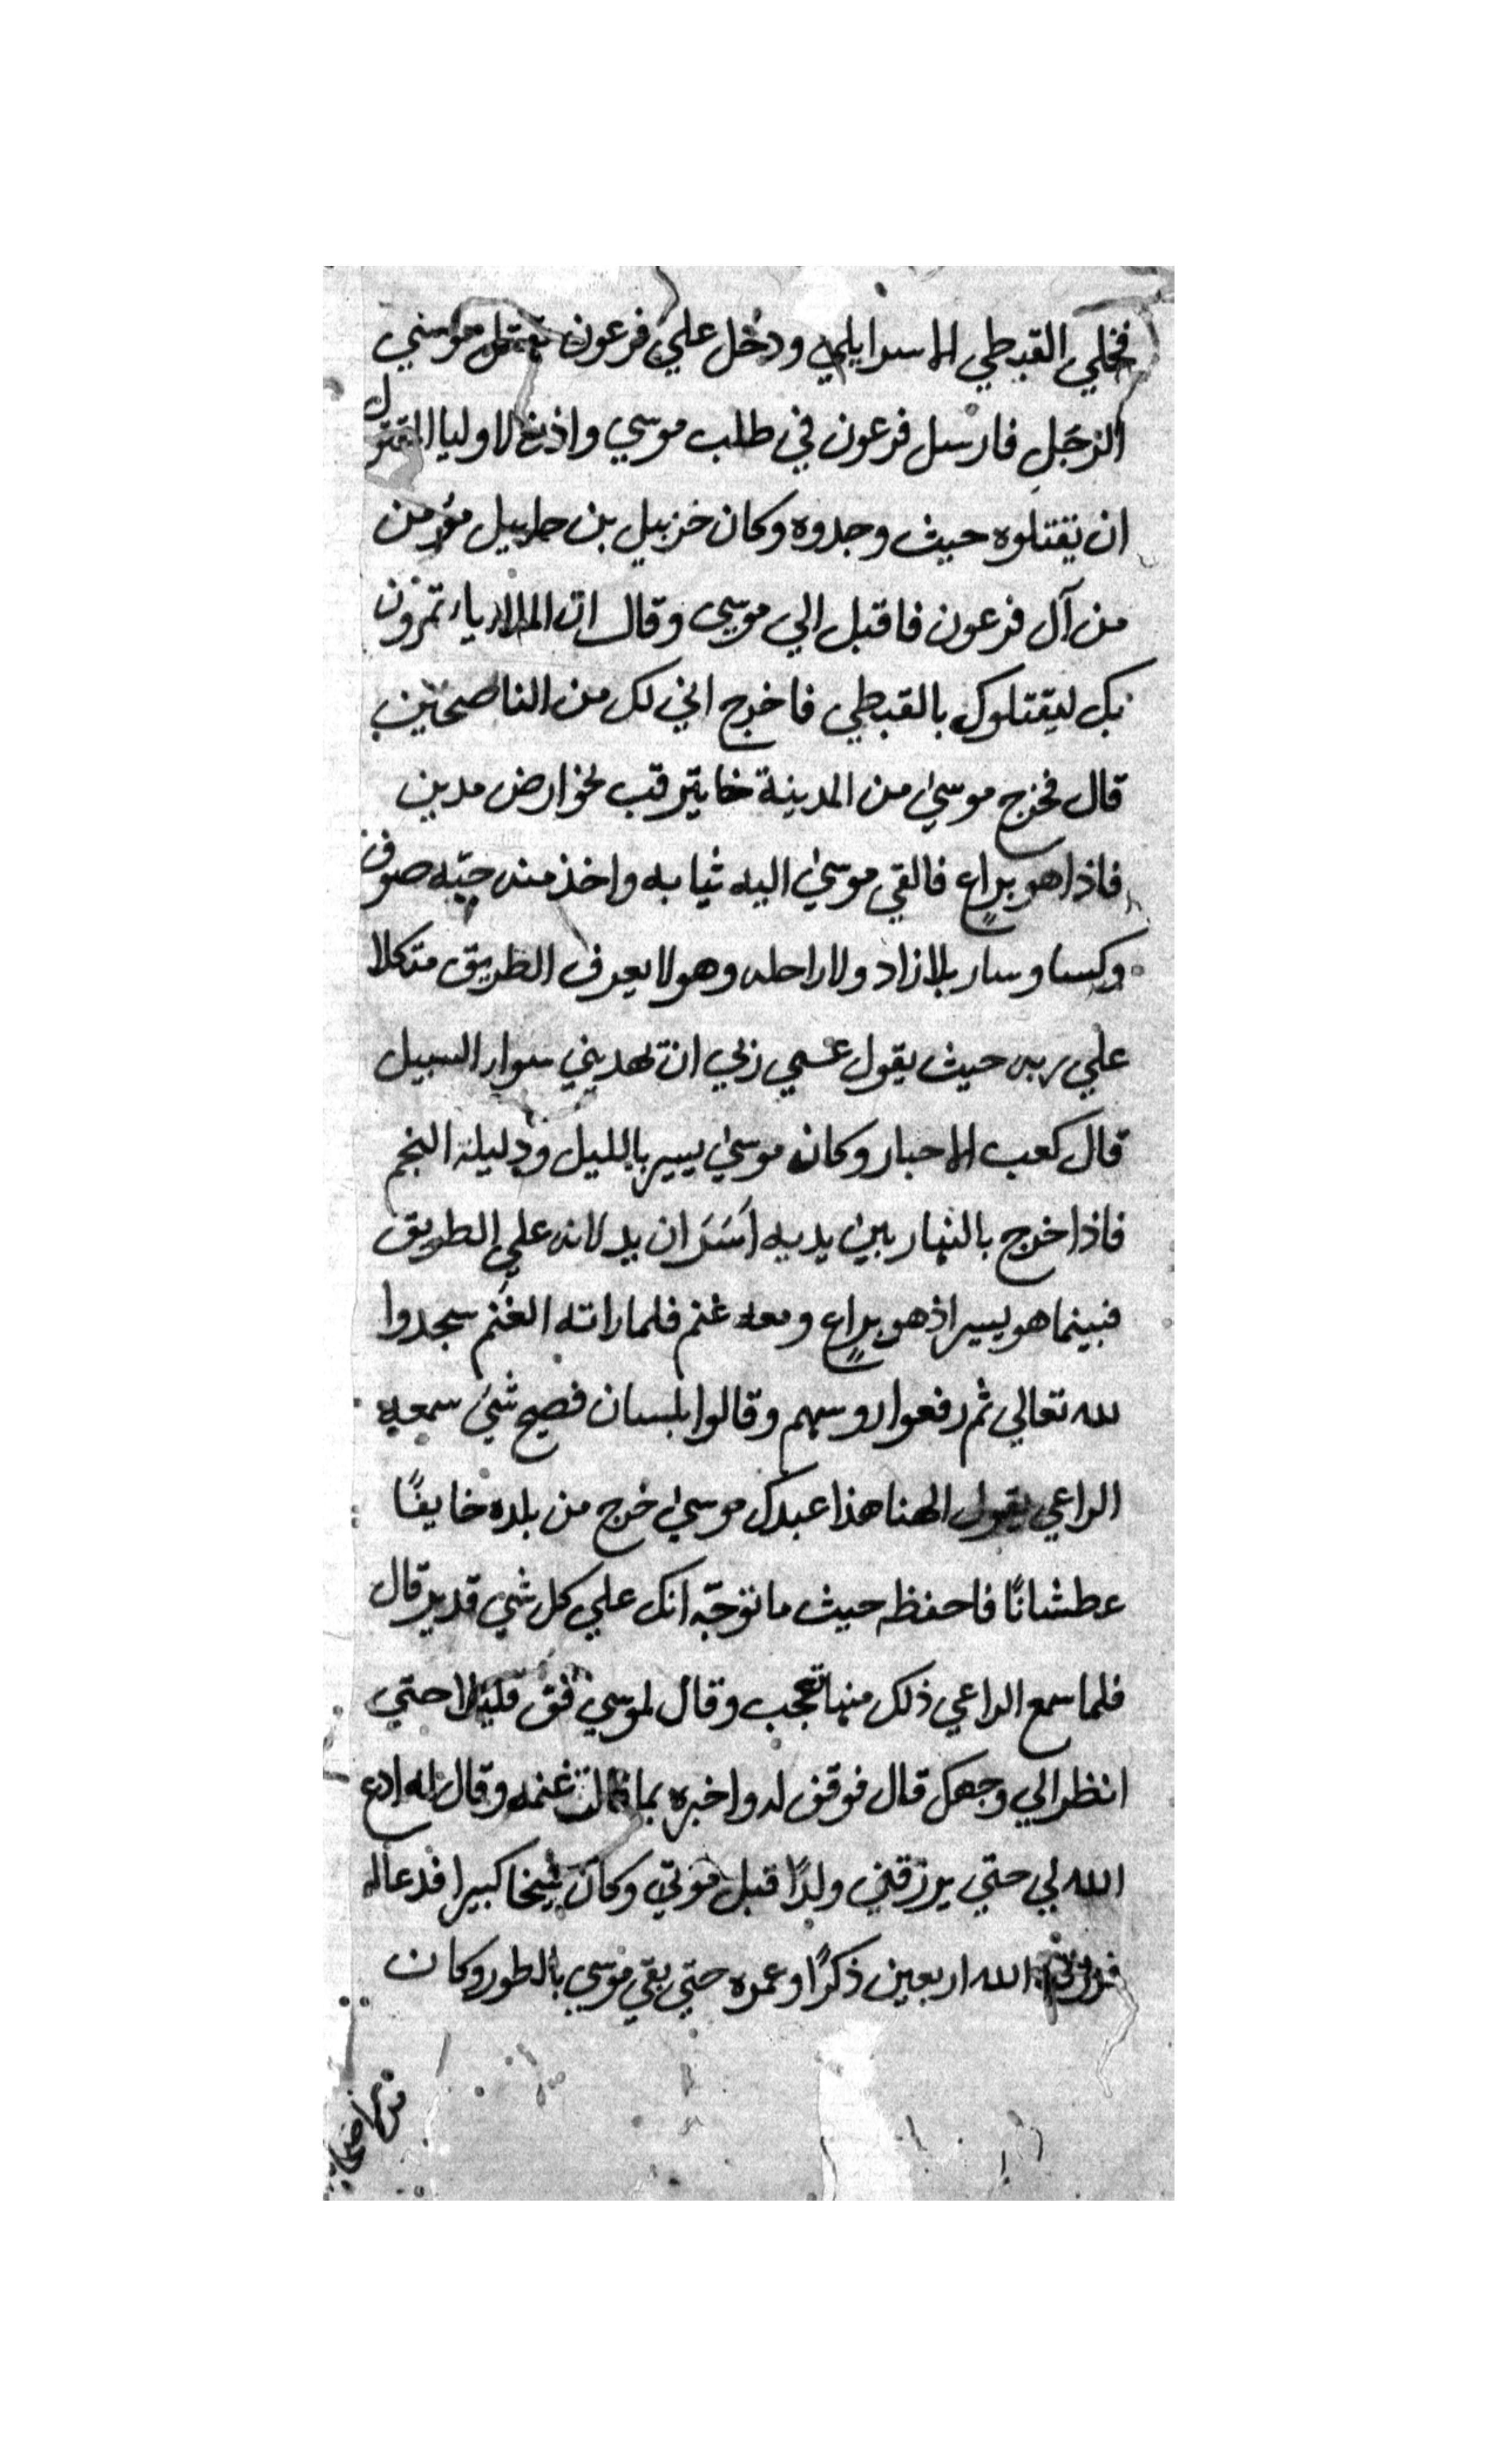 فخلي القبطي الاسرايلي ودخل علي فرعون بقتل موسي
الرجل فارسل فرعون في طلب موسي واذن لاوليا المقتول
ان يقتلوه حيث وجدوه وكان خزبيل بن حابيل مؤمن
من آل فرعون فاقبل الي موسي وقال ان الملا ياتمرون
بك ليقتلوك بالقبطي فاخرج اني لك من الناصحين
قال فخرج موسي من المدينة خايترقب نحو ارض مدين
فاذا هو براعٍ فالقي موسي اليه ثيابه واخذ منه جبّه صوف
وكسا وسار بلا زاد ولا راحله وهو لا يعرف الطريق متكلا
علي ربه حيث يقول عسي ربي ان تهديني سوا السبيل
قال كعب الاحبار وكان موسي يسير بالليل ودليله النجم
فاذا خرج بالنهار بين يديه اَسَدَان يدلانه علي الطريق
فبينما هو يسير اذ هو براعٍ ومعه غنم فلما راته الغنم سجدوا
لله تعالي ثم رفعوا روسهم وقالوا بلسان فصيح شي سمعه
الراعي يقول الهنا هذا عبدك موسي خرج من بلده خايفًا
عطشانًا فاحفظه حيث ما توجّه انك علي كل شي قدير قال
فلما سمع الراعي ذلك منها تعجب وقال لموسي قف قليلا حتي
انظر الي وجهك قال فوقف له واخبره بما قالت غنمه وقال له ادع
الله لي حتي يرزقني ولدًا قبل موتي وكان شيخا كبيرا فدعا له
فرزقه الله اربعين ذكرًا وعمره حتي بقي موسي بالطور وكان